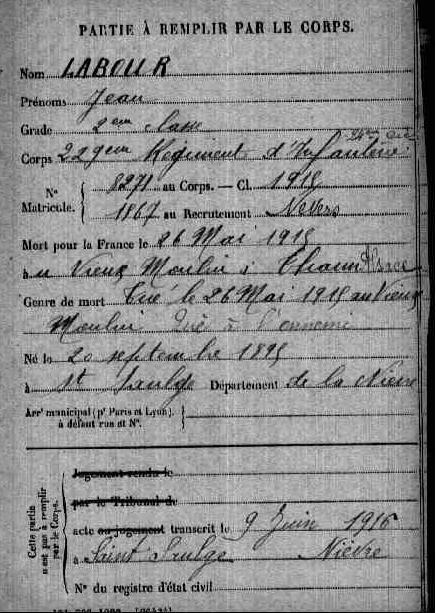 PARTIE À REMPLIR PAR LE CORPS.
Nom LABOUR
Prénoms Jean
Grade 2eme classe
Corps 229eme Régiment d'Infanterie 24e Cie
Nº Matricule. 8271 au Corps. — Cl. 1915
1867 au Recrutement Nevers
Mort pour la France le 26 Mai 1915
à u Vieux Moulin à Thann Alsace
Genre de mort Tué le 26 Mai 1915 au Vieux
Moulin Tué à l'ennemi
Né le 20 septembre 1895
à St Saulge Département de la Nièvre
Arrt municipal (pr Paris et Lyon),
à défaut rue et Nº.
Cette partie n'est pas à remplir par le Corps.
Jugement rendu le
par le Tribunal de
acte ou jugement transcrit le 9 Juin 1916
à Saint Saulge Nièvre
Nº du registre d'état civil